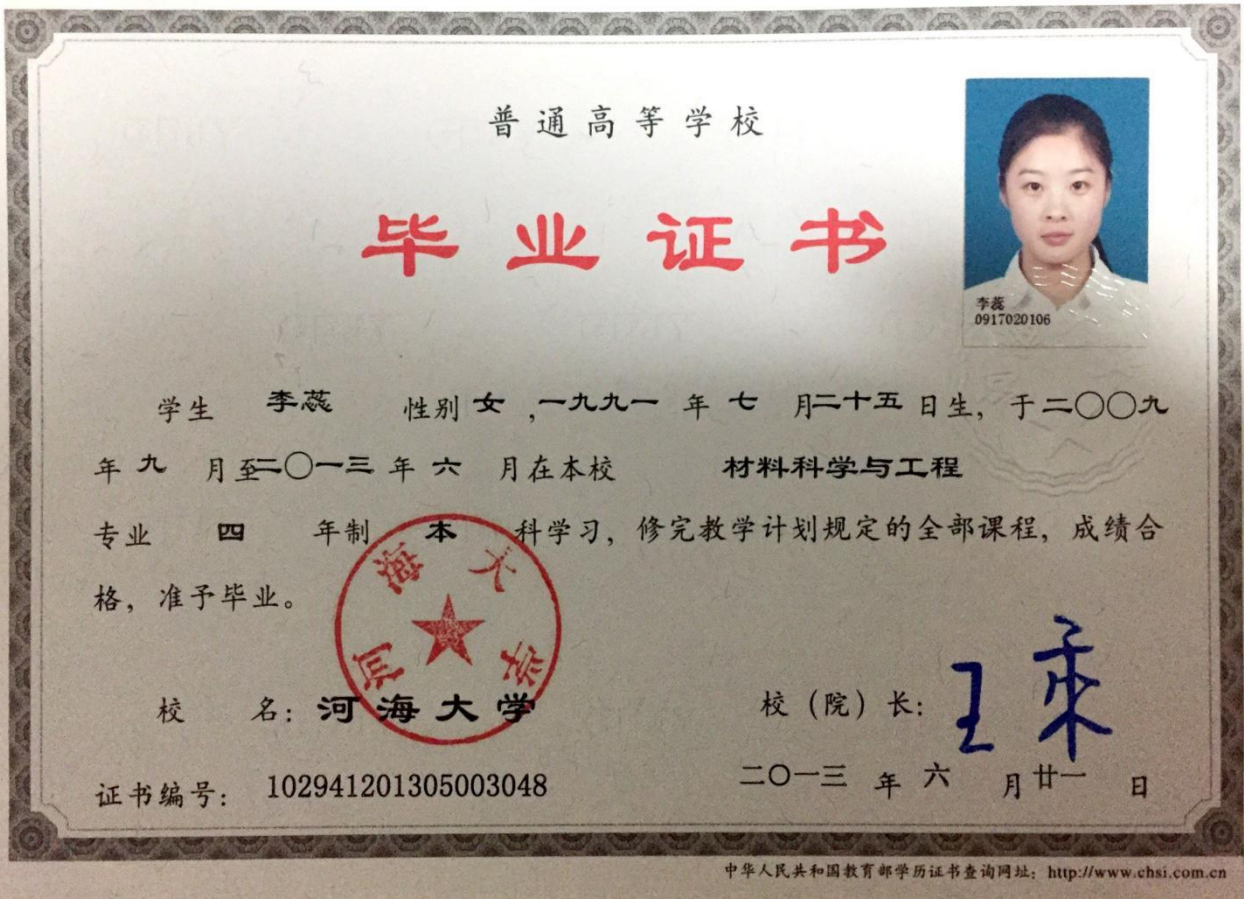 普通高等学校
毕业证书
李蕊
0917020106
学生 李蕊 性别 女 ,一九九一 年 七 月二十五 日生，于二〇〇九
年 九 月至二〇一三 年 六 月在本校 材料科学与工程
专业 四 年制 本 科学习，修完教学计划规定的全部课程，成绩合
格，准予毕业。
河海大学
校 名：河海大学 校（院）长：王乘
证书编号：102941201305003048 二〇一三 年 六 月廿一 日
中华人民共和国教育部学历证书查询网址：http://www.chsi.com.cn